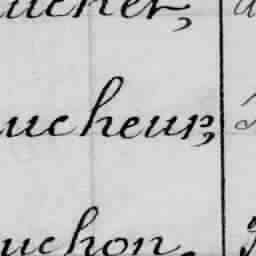 ucher,
ucheur,
uchon,